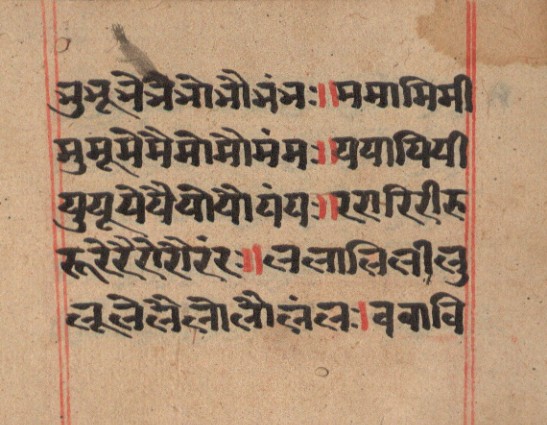 भुभूभेभैभोभौभंभः॥ममामिमी
मुमूमेमैमोमौमंमः॥ययायियी
युयूयेयैयोयौयंयः॥ररारिरीरु
रूरेरैरोरौरंरः॥ललालिलीलु
लूलेलैलोलौलंलः।ववावि